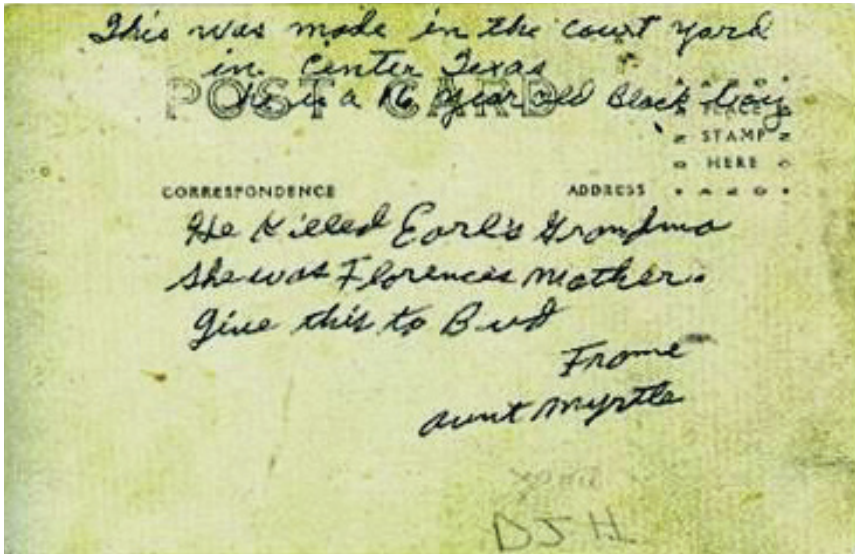 This was made in the court yard
in Center Texas
POST CARD
he is a 16 year old Black boy
PLACE
STAMP
HERE
CORRESPONDENCE ADDRESS
He Killed Earl's Grandma
She was Florences Mother.
Give this to Bud
From
Aunt Myrtle
DJH